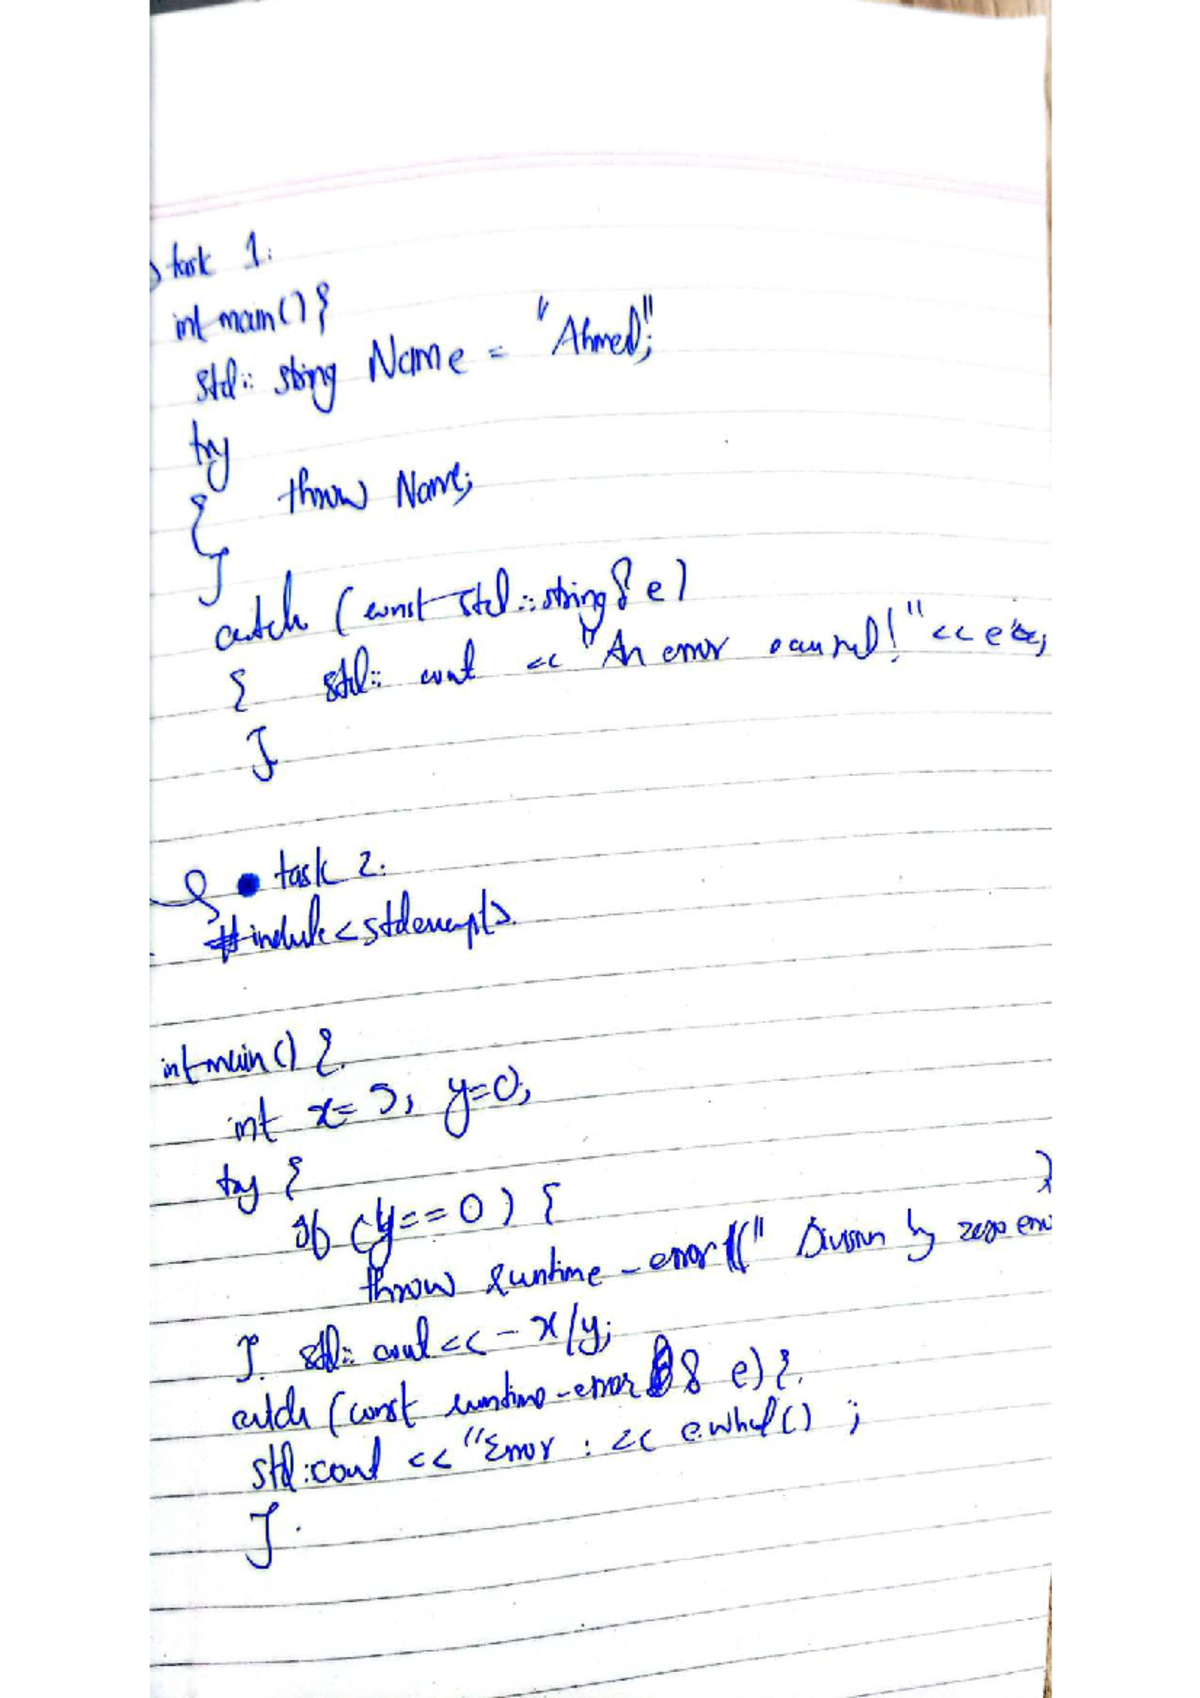 task 1:
int main(){
std:: string Name = "Ahmed";
try
{ throw Name;
}
catch (const std::string& e)
{ std:: cout << "An error occurred!" << e
}
task 2:
#include<stdexcept>
int main() {
int x= 5, y=0;
try {
if (y==0) {
throw runtime_error(" Division by zero
} std:: cout << - x/y;
catch (const runtime-error & e) {
std:cout << "Error : << e.what() ;
}